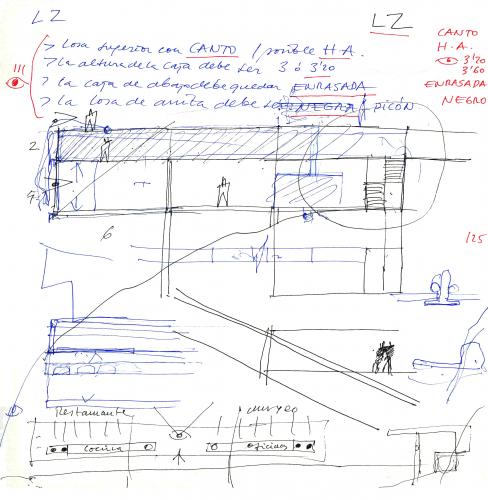 LZ
LZ
> Losa superior con CANTO / posible H.A.
> La altura de la caja debe ser 3 ó 3'20
> la caja de abajo debe quedar ENRASADA
> la losa de arriba debe ser NEGRA / PICÓN
CANTO
H.A.
3'20
3'60
ENRASADA
NEGRO
2
6
1/25
Restaurante
museo
cocina
oficinas